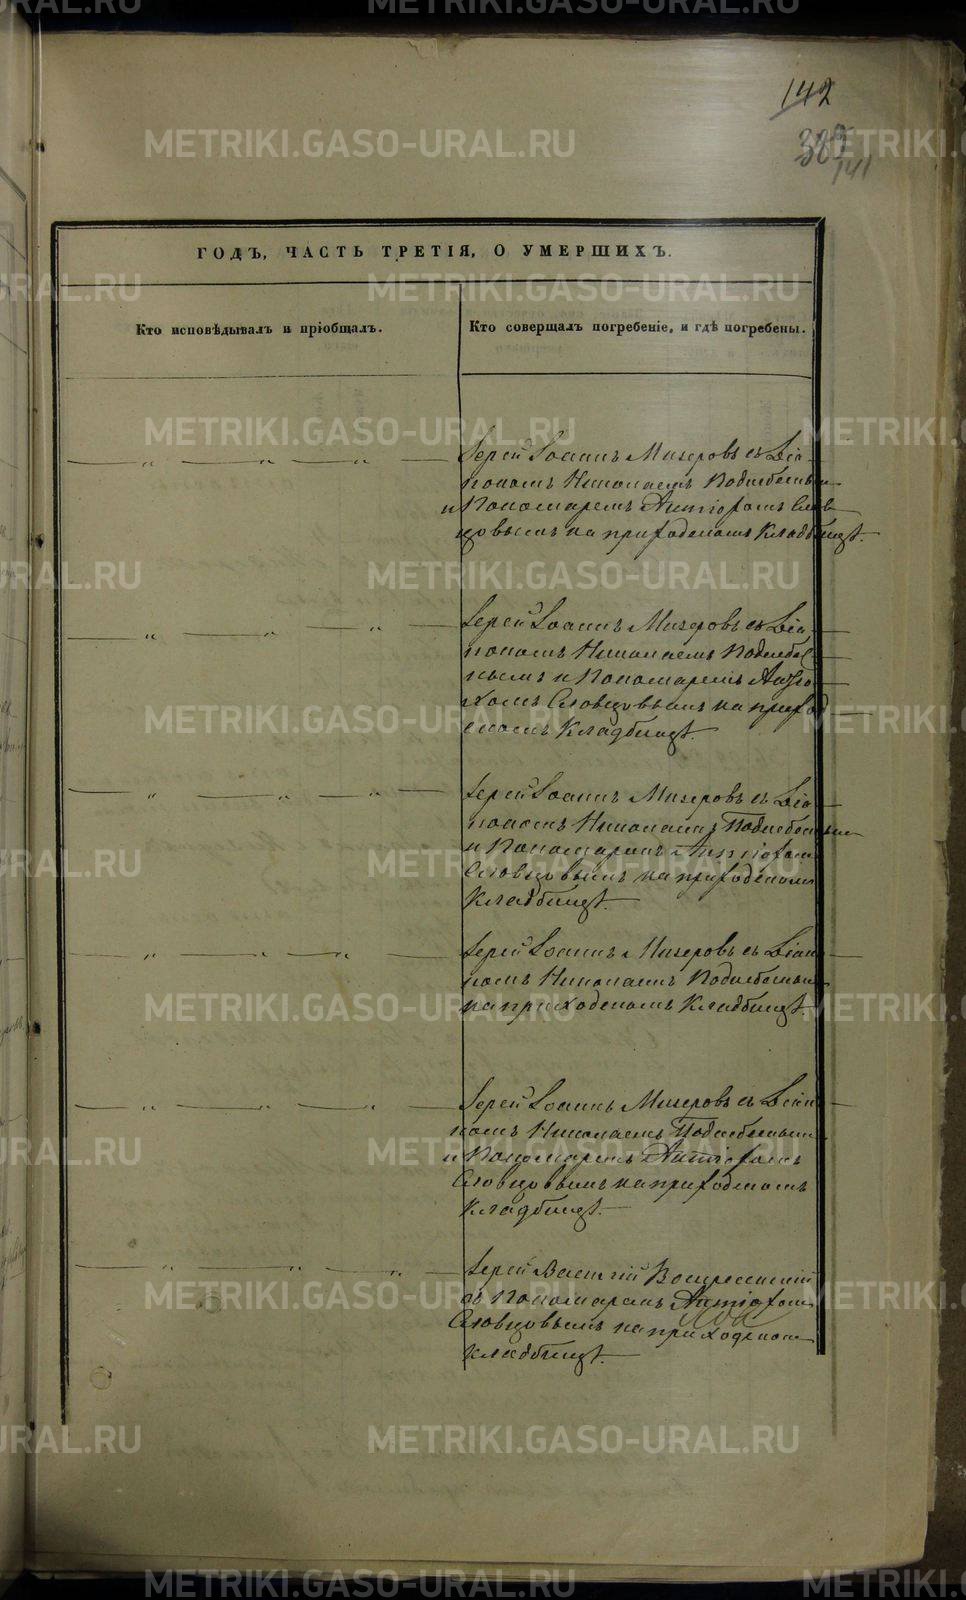 142
385
141
ГОДЪ, ЧАСТЬ ТРЕТІЯ, О УМЕРШИХЪ.
Кто исповѣдывалъ и пріобщалъ.
Кто совершалъ погребеніе, и гдѣ погребены.
— „ — „ — „ —
Іерей Іоаннъ Мизеровъ съ Діа-
кономъ Николаемъ
и Пономаремъ Антіохомъ Слов
цовымъ на приходскомъ Кладбищѣ.
— „ — „ — „ —
Іерей Іоаннъ Мизеровъ съ Діа-
кономъ Николаемъ
нымъ и Пономаремъ Антіо-
хомъ Словцовымъ на приход
скомъ Кладбищѣ.
— „ — „ — „ —
Іерей Іоаннъ Мизеровъ съ Діа-
кономъ Николаемъ
и Пономаремъ Антіохомъ
Словцовымъ на приходскомъ
Кладбищѣ.
— „ — „ — „ —
Іерей Іоаннъ Мизеровъ съ Діако
номъ Николаемъ
на приходскомъ Кладбищѣ.
— „ — „ — „ —
Іерей Іоаннъ Мизеровъ съ Діако
номъ Николаемъ
и Пономаремъ Антіохомъ
Словцовымъ на приходскомъ
Кладбищѣ.
— „ — „ — „ —
Іерей Василій Воскресенскій
съ Пономаремъ Антіохомъ
Словцовымъ на приходскомъ
кладбищѣ.
METRIKI.GASO-URAL.RU